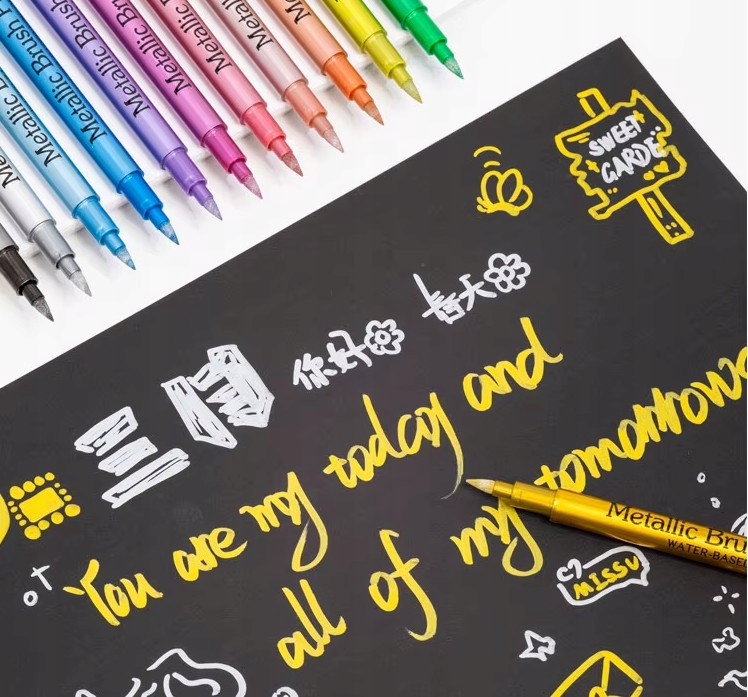 Metallic Brush
Metallic Brush
Metallic Brush
Metallic Brush
Metallic Brush
SWEET
GARDE
三月
你好
春天
You are my today and
all of my tomorrows
Metallic Bru
WATER-BASED
MISSU